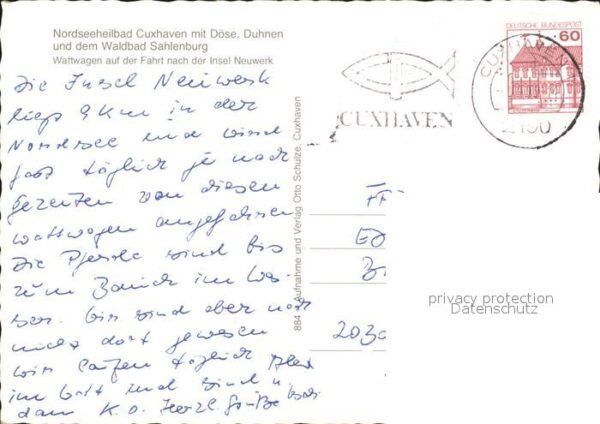 Nordseeheilbad Cuxhaven mit Döse, Duhnen
und dem Waldbad Sahlenburg
Wattwagen auf der Fahrt nach der Insel Neuwerk
Die Insel Neuwerk
liegt 9 km in der
Nordsee und wird
fast täglich je nach
Gezeiten von diesen
Wattwagen angefahren
Die Pferde sind bis
zum Bauch im Was-
ser. Wir sind aber noch
nicht dort gewesen
wir laufen täglich
im Watt und sind
dann K.O. Herzl. Grüße
884 Aufnahme und Verlag Otto Schulze, Cuxhaven
DEUTSCHE BUNDESPOST
60
CUXHAVEN
CUXHAVEN
2190
privacy protection
Datenschutz